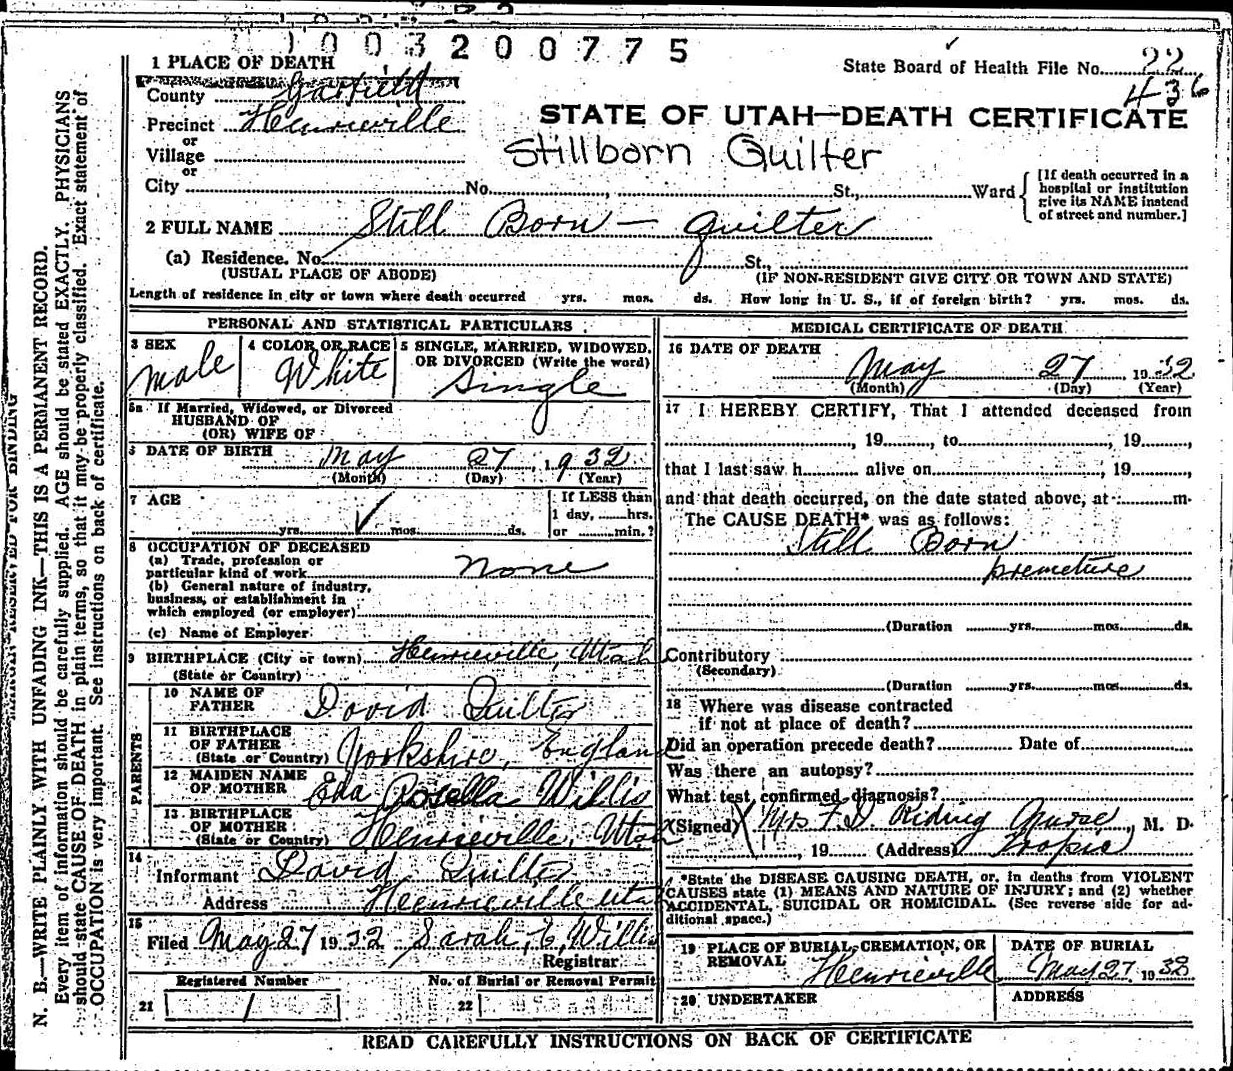 1003200775
1 PLACE OF DEATH
State Board of Health File No. 22
436
County Garfield
STATE OF UTAH—DEATH CERTIFICATE
Precinct Henrieville
or
Village
Stillborn Quilter
or
City No. St., Ward
[If death occurred in a hospital or institution give its NAME instead of street and number.]
2 FULL NAME Still Born — Quilter
(a) Residence. No. St.,
(USUAL PLACE OF ABODE) (IF NON-RESIDENT GIVE CITY OR TOWN AND STATE)
Length of residence in city or town where death occurred yrs. mos. ds. How long in U. S., if of foreign birth? yrs. mos. ds.
PERSONAL AND STATISTICAL PARTICULARS
3 SEX 4 COLOR OR RACE 5 SINGLE, MARRIED, WIDOWED,
OR DIVORCED (Write the word)
male White Single
5a If Married, Widowed, or Divorced
HUSBAND OF
(OR) WIFE OF
6 DATE OF BIRTH May 27, 1932
(Month) (Day) (Year)
7 AGE
yrs. mos. ds.
If LESS than
1 day, hrs.
or min.?
8 OCCUPATION OF DECEASED
(a) Trade, profession or
particular kind of work None
(b) General nature of industry,
business, or establishment in
which employed (or employer)
(c) Name of Employer
9 BIRTHPLACE (City or town) Henrieville, Utah
(State or Country)
PARENTS
10 NAME OF
FATHER David Quilter
11 BIRTHPLACE
OF FATHER
(State or Country) Yorkshire, England
12 MAIDEN NAME
OF MOTHER Eda Rosella Willis
13 BIRTHPLACE
OF MOTHER
(State or Country) Henrieville, Utah
14
Informant David Quilter
Address Henrieville Utah
15
Filed May 27 1932 Sarah E. Willis
Registrar
Registered Number No. of Burial or Removal Permit
21 1 22
MEDICAL CERTIFICATE OF DEATH
16 DATE OF DEATH
May 27, 1932
(Month) (Day) (Year)
17 I HEREBY CERTIFY, That I attended deceased from
, 19 , to , 19 ,
that I last saw h alive on , 19 ,
and that death occurred, on the date stated above, at m.
The CAUSE DEATH* was as follows:
Still Born
premeture
(Duration yrs. mos. ds.
Contributory
(Secondary)
(Duration yrs. mos. ds.
18 Where was disease contracted
if not at place of death?
Did an operation precede death? Date of
Was there an autopsy?
What test confirmed diagnosis?
(Signed) Mrs F. D. Riding Nurse, M. D.
, 19 (Address) Tropic
*State the DISEASE CAUSING DEATH, or, in deaths from VIOLENT
CAUSES state (1) MEANS AND NATURE OF INJURY; and (2) whether
ACCIDENTAL, SUICIDAL OR HOMICIDAL. (See reverse side for ad-
ditional space.)
19 PLACE OF BURIAL, CREMATION, OR
REMOVAL Henrieville
DATE OF BURIAL
May 27, 1932
20 UNDERTAKER ADDRESS
READ CAREFULLY INSTRUCTIONS ON BACK OF CERTIFICATE
N. B.—WRITE PLAINLY WITH UNFADING INK—THIS IS A PERMANENT RECORD.
Every item of information should be carefully supplied. AGE should be stated EXACTLY. PHYSICIANS
should state CAUSE OF DEATH in plain terms, so that it may be properly classified. Exact statement of
OCCUPATION is very important. See instructions on back of certificate.